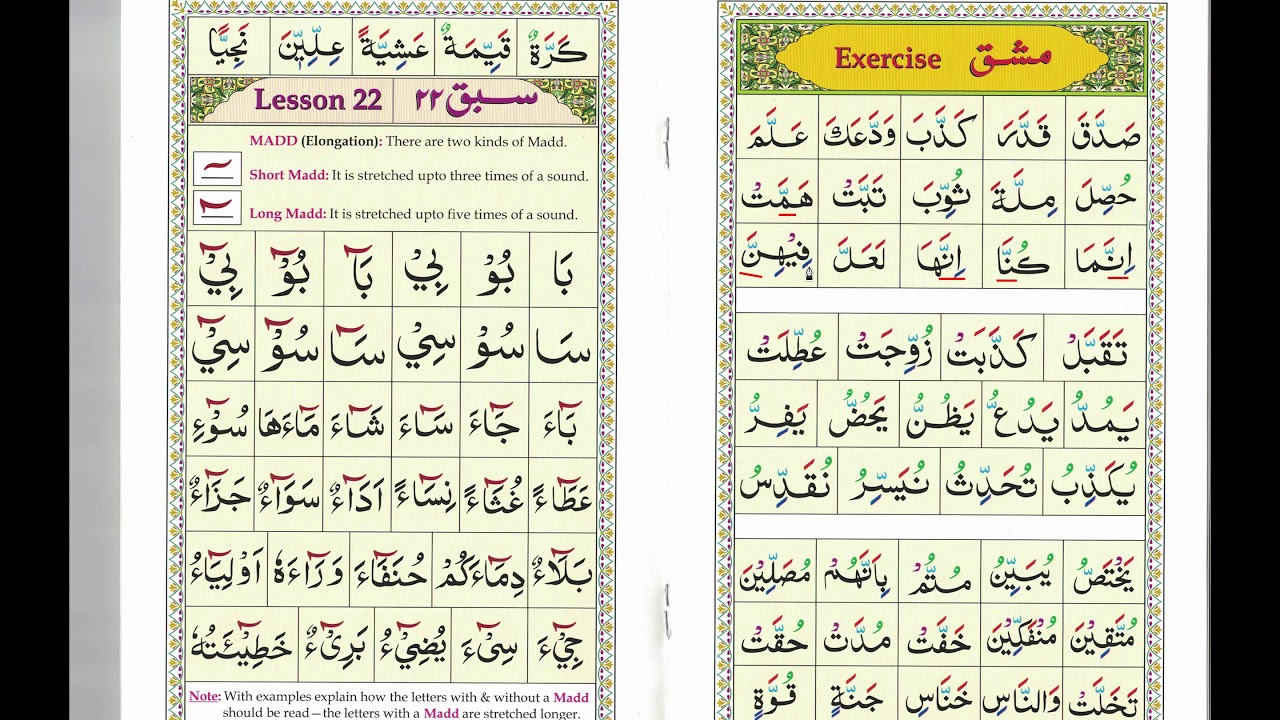 كَرَّةٌ قَيِّمَةٌ عَشِيَّةً عِلِّيِّيْنَ نَجِيًّا
Lesson 22 سبق ٢٢
MADD (Elongation): There are two kinds of Madd.
Short Madd: It is stretched upto three times of a sound.
Long Madd: It is stretched upto five times of a sound.
بَا بُوْ بِيْ بَآ بُوْٓ بِيْٓ
سَا سُوْ سِيْ سَآ سُوْٓ سِيْٓ
بَآءَ جَآءَ سَآءَ شَآءَ مَآءَهَا سُوْٓءِ
عَطَآءً غُثَآءً نِسَآءً اَدَآءٌ سَوَآءٌ جَزَآءٌ
بَلَآءٌ دِمَآءَكُمْ حُنَفَآءَ وَرَآءَهٗ اَوْلِيَآءُ
جِيْٓءَ سِيْٓءَ يُضِيْٓءُ بَرِيْٓءٌ خَطِيْٓئَتُهٗ
Note: With examples explain how the letters with & without a Madd
should be read–the letters with a Madd are stretched longer.
Exercise مشق
صَدَّقَ قَدَّرَ كَذَّبَ وَدَّعَكَ عَلَّمَ
حُصِّلَ مِلَّةَ ثُوِّبَ تَبَّتْ هَمَّتْ
اِنَّمَا كُنَّا اِنَّهَا لَعَلَّ فِيْهِنَّ
تَقَبَّلْ كَذَّبَتْ زُوِّجَتْ عُطِّلَتْ
يَمُدُّ يَدُعُّ يَظُنُّ يَحُضُّ يَفِرُّ
يُكَذِّبُ تُحَدِّثُ نُيَسِّرُ نُقَدِّسُ
يَخْتَصُّ يُبَيِّنُ مُتِمُّ بِاَنَّهُمْ مُصَلِّيْنَ
مُتَّقِيْنَ مُنْفَكِّيْنَ خَفَّتْ مُدَّتْ حُقَّتْ
تَخَلَّتْ وَالنَّاسِ خَنَّاسِ جَنَّةٍ قُوَّةٍ